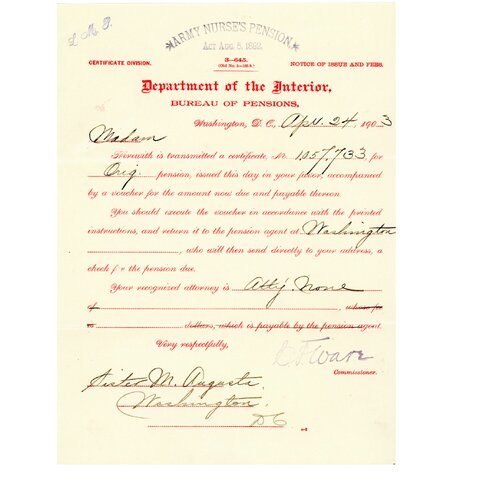 L. M. P.
ARMY NURSE'S PENSION.
ACT AUG. 5, 1892.
3—645.
CERTIFICATE DIVISION.
NOTICE OF ISSUE AND FEES.
Department of the Interior,
BUREAU OF PENSIONS,
Washington, D. C., Apr. 24, 1903
Madam
Herewith is transmitted a certificate, No. 1057.733, for
Orig. pension, issued this day in your favor, accompanied
by a voucher for the amount now due and payable thereon.
You should execute the voucher in accordance with the printed
instructions, and return it to the pension agent at Washington
, who will then send directly to your address, a
check for the pension due.
Your recognized attorney is Att'y. None
of , whose fee
is dollars, which is payable by the pension agent.
Very respectfully,
Ware
Commissioner.
Sister M. Augusta,
Washington.
DC